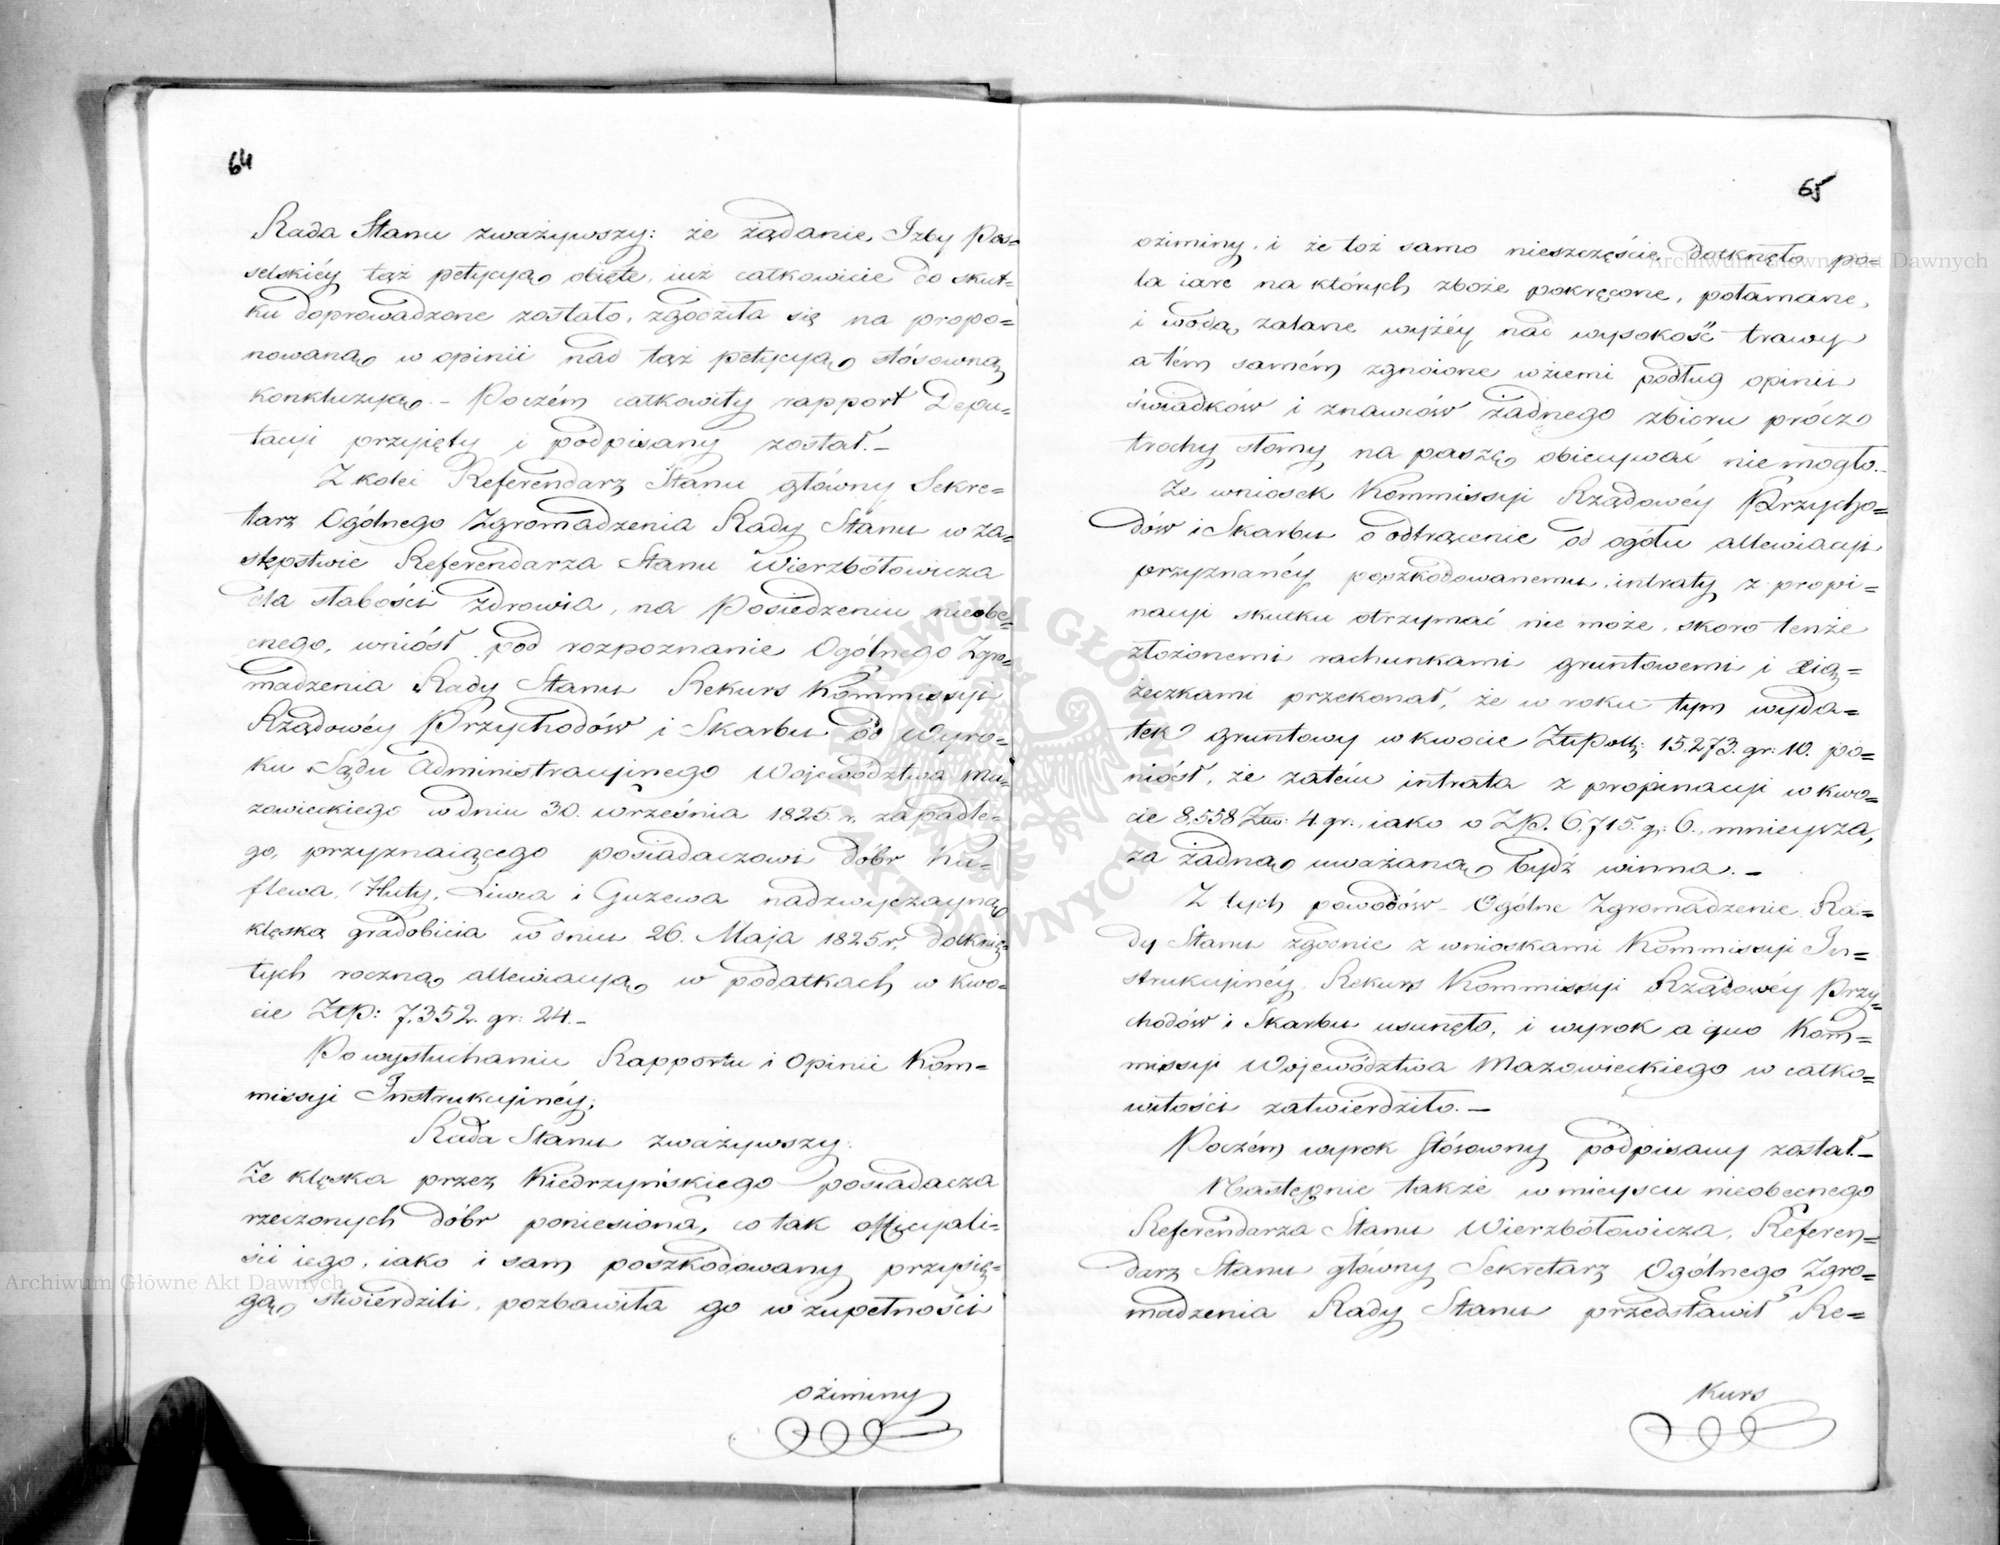 64
Rada Stanu zważywszy: że żądanie Izby Pos=
selskiéy tąż petycyą obięte, iuż całkowicie do skut=
ku doprowadzone zostało, zgodziła się na propo=
nowaną w opinii nad tąż petycyą stósowną
konkluzyą. – Poczém całkowity rapport Depu=
tacyi przyięty i podpisany został. –
Z kolei Referendarz Stanu główny Sekre=
tarz Ogólnego Zgromadzenia Rady Stanu w za=
stępstwie Referendarza Stanu Wierzbołowicza
dla słabości zdrowia, na Posiedzeniu nieobe=
cnego, wniósł pod rozpoznanie Ogólnego Zgro=
madzenia Rady Stanu Rekurs Kommissyi
Rządowéy Przychodów i Skarbu od Wyro=
ku Sądu Administracyinego Województwa Ma=
zowieckiego w dniu 30. września 1825. r. zapadłe=
go, przyznaiącego posiadaczowi dóbr Ku=
flewa, Huty, Liwca i Guzewa nadzwyczayną
klęską gradobicia w dniu 26. Maja 1825 r. dotknię=
tych roczną allewiacyą w podatkach w kwo=
cie Złp: 7,352. gr: 24. –
Po wysłuchaniu Rapportu i Opinii Kom=
missyi Instrukcyinéy;
Rada Stanu zważywszy:
Że klęska przez Kiedrzyńskiego posiadacza
rzeczonych dóbr poniesiona, co tak officyali=
ści iego, iako i sam poszkodowany przysię=
gą stwierdzili, pozbawiła go w zupełności
oziminy
65
oziminy, i że toż samo nieszczęście dotknęło po=
la iare na których zboże pokręcone, połamane,
i wodą zalane wyżéy nad wysokość trawy
a tém samém zgnoione w ziemi podług opinii
świadków i znawców żadnego zbioru prócz
trochy słomy na paszę obiecywać nie mogło. –
Że wniosek Kommissyi Rządowéy Przycho=
dów i Skarbu o odtrącenie od ogółu allewiacyi
przyznanéy poszkodowanemu, intraty z propi=
nacyi skutku otrzymać nie może, skoro tenże
złożonemi rachunkami gruntowemi i xią=
żeczkami przekonał, że w roku tym wyda=
tek gruntowy w kwocie ZłłPolk: 15,273. gr: 10. po=
niósł, że zatém intrata z propinacyi w kwo=
cie 8,558 Złłt: 4. gr., iako o ZłP. 6,715. g: 6., mnieysza,
za żadną uważaną bydź winna. –
Z tych powodów Ogólne Zgromadzenie Ra=
dy Stanu zgodnie z wnioskami Kommissyi In=
strukcyinéy, Rekurs Kommissyi Rządowéy Przy=
chodów i Skarbu usunęło, i wyrok a quo Kom=
missyi Województwa Mazowieckiego w całko=
witości zatwierdziło. –
Poczém wyrok stósowny podpisany został. –
Następnie także w mieyscu nieobecnego
Referendarza Stanu Wierzbołowicza, Referen=
darz Stanu główny Sekretarz Ogólnego Zgro=
madzenia Rady Stanu przedstawił Re=
kurs
Archiwum Główne Akt Dawnych
Archiwum Główne Akt Dawnych
ARCHIWUM GŁÓWNE AKT DAWNYCH W WARSZAWIE